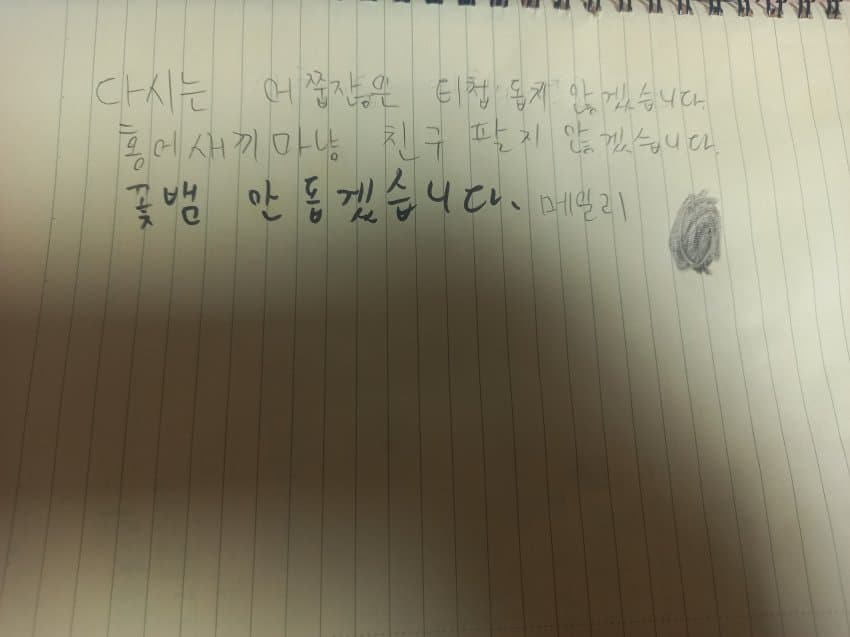 다시는 어쭙잖은 티첩 돕지 않겠습니다.
홍어새끼마냥 친구 팔지 않겠습니다.
꽃뱀 안 돕겠습니다. 메일리